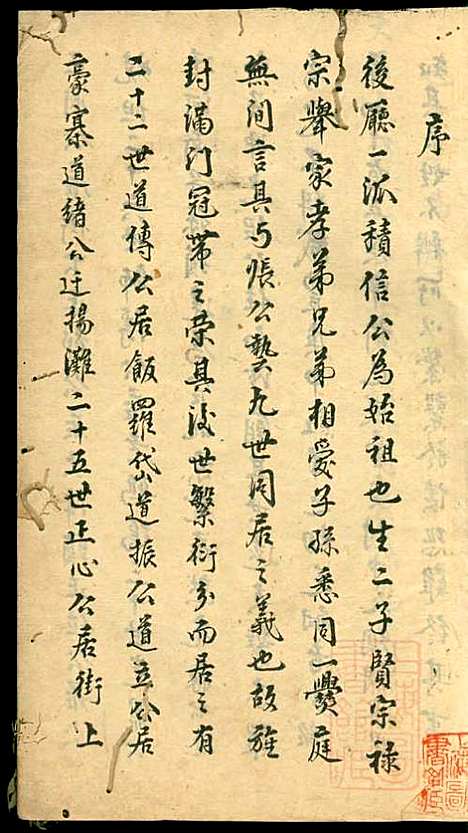 序
後廳一派積信公為始祖也生二子賢宗祿
宗舉家孝弟兄弟相愛子孫悉同一爨庭
無间言其与張公藝九世同居之義也故旌
封滿门冠带之荣其後世繁衍分而居之有
二十二世道傳公居飯羅岱道振公道立公居
豪寨道緒公迁揚灘二十五世正心公居街上